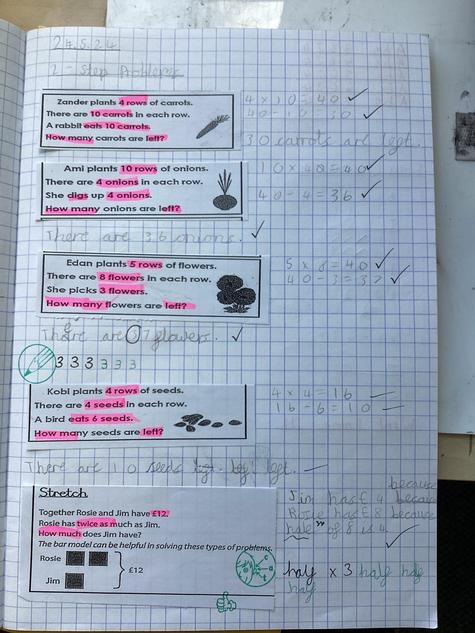 24.5.24
2-step problems
Zander plants 4 rows of carrots.
There are 10 carrots in each row.
A rabbit eats 10 carrots.
How many carrots are left?
4 x 10 = 40
30 carrots are left.
Ami plants 10 rows of onions.
There are 4 onions in each row.
She digs up 4 onions.
How many onions are left?
40 - 4 = 36
There are 36 onions.
Edan plants 5 rows of flowers.
There are 8 flowers in each row.
She picks 3 flowers.
How many flowers are left?
5 x 8 = 40
40 - 3 = 37
There are 37 flowers.
3 3 3 3 3 3
Kobi plants 4 rows of seeds.
There are 4 seeds in each row.
A bird eats 6 seeds.
How many seeds are left?
4 x 4 = 16
16 - 6 = 10
There are 10 seeds left.
Stretch
Together Rosie and Jim have £12.
Rosie has twice as much as Jim.
How much does Jim have?
The bar model can be helpful in solving these types of problems.
Rosie
Jim
£12
Jim has £4 because
Rosie has £8 because
of 8 is 4
hay x 3 hay hay
hay